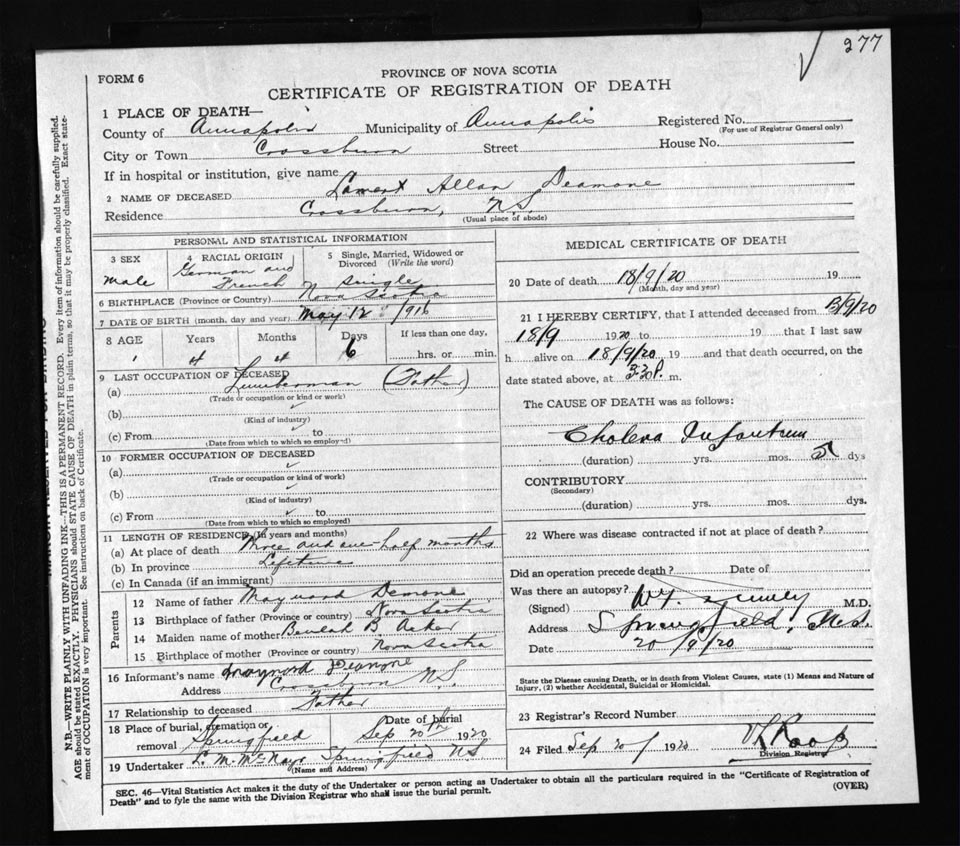 277
FORM 6
PROVINCE OF NOVA SCOTIA
CERTIFICATE OF REGISTRATION OF DEATH
1 PLACE OF DEATH—
County of Annapolis Municipality of Annapolis Registered No.
(For use of Registrar General only)
City or Town Crossburn Street House No.
If in hospital or institution, give name
2 NAME OF DECEASED Lamert Allan Deamone
Residence Crossburn, N.S.
(Usual place of abode)
PERSONAL AND STATISTICAL INFORMATION
3 SEX
male
4 RACIAL ORIGIN
German and French
5 Single, Married, Widowed or Divorced (Write the word)
Single
6 BIRTHPLACE (Province or Country) Nova Scotia
7 DATE OF BIRTH (month, day and year) May 12
8 AGE Years Months Days If less than one day,
6 hrs. or min.
9 LAST OCCUPATION OF DECEASED
(a) Lumberman (Father)
(Trade or occupation or kind or work)
(b)
(Kind of industry)
(c) From to
(Date from which to which so employed)
10 FORMER OCCUPATION OF DECEASED
(a)
(Trade or occupation or kind of work)
(b)
(Kind of industry)
(c) From to
(Date from which to which so employed)
11 LENGTH OF RESIDENCE (In years and months)
(a) At place of death three and one-half months
(b) In province Lifetime
(c) In Canada (if an immigrant)
Parents
12 Name of father Maynard Demone
13 Birthplace of father (Province or country) Nova Scotia
14 Maiden name of mother Beulah B. Acker
15 Birthplace of mother (Province or country) Nova Scotia
16 Informant's name Maynard Deamone
Address Crossburn N.S.
17 Relationship to deceased Father
18 Place of burial, cremation or removal Springfield Date of burial Sep 20th 1920
19 Undertaker L. M. McNayr Springfield N.S.
(Name and Address)
MEDICAL CERTIFICATE OF DEATH
20 Date of death 18/9/20 19
(Month, day and year)
21 I HEREBY CERTIFY, that I attended deceased from 13/9/20
18/9 1920 to 19 that I last saw
h alive on 18/9/20, 19 and that death occurred, on the
date stated above, at 3.30 P. m.
The CAUSE OF DEATH was as follows:
Cholera Infantum
(duration) yrs. mos. dys
CONTRIBUTORY
(Secondary)
(duration) yrs. mos. dys.
22 Where was disease contracted if not at place of death?
Did an operation precede death? Date of
Was there an autopsy?
(Signed) M.D.
Address Springfield, N.S.
Date 20/9/20
State the Disease causing Death, or in death from Violent Causes, state (1) Means and Nature of
Injury, (2) whether Accidental, Suicidal or Homicidal.
23 Registrar's Record Number
24 Filed Sep 20 1920
Division Registrar
SEC. 46—Vital Statistics Act makes it the duty of the Undertaker or person acting as Undertaker to obtain all the particulars required in the "Certificate of Registration of
Death" and to fyle the same with the Division Registrar who shall issue the burial permit.
(OVER)
N.B.—WRITE PLAINLY WITH UNFADING INK—THIS IS A PERMANENT RECORD. Every item of information should be carefully supplied.
AGE should be stated EXACTLY. PHYSICIANS should STATE CAUSE OF DEATH in plain terms, so that it may be properly classified. Exact state-
ment of OCCUPATION is very important. See instructions on back of Certificate.